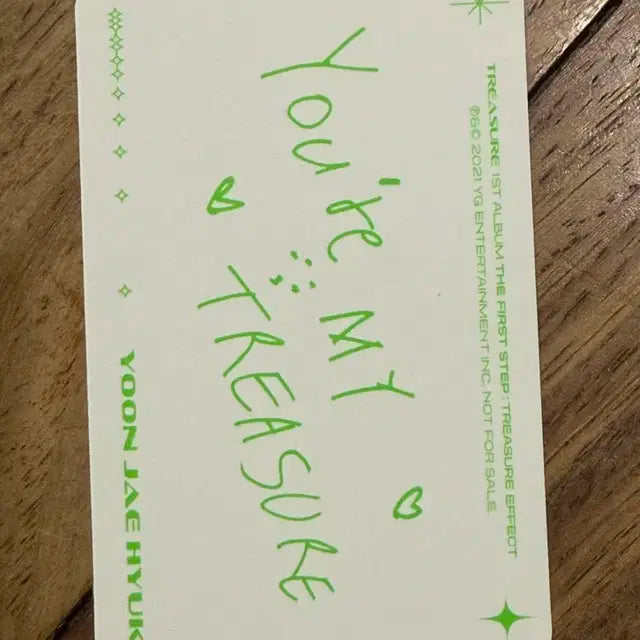 TREASURE 1ST ALBUM THE FIRST STEP : TREASURE EFFECT
℗&© 2021 YG ENTERTAINMENT INC. NOT FOR SALE.
You're MY
TREASURE
YOON JAE HYUK